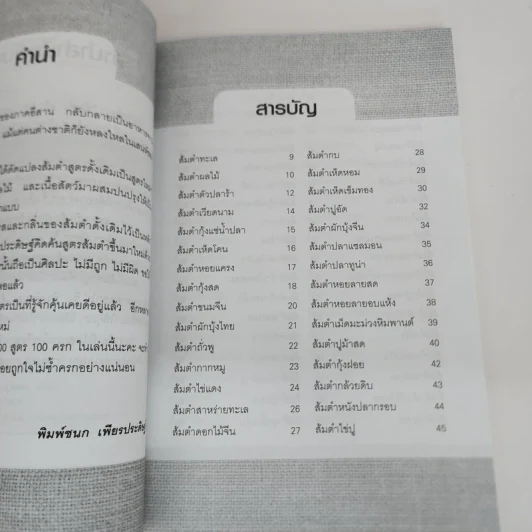 คำนำ
ของภาคอีสาน กลับกลายเป็นอาหาร
แม้แต่คนต่างชาติก็ยังหลงใหลในเสน่ห์
ได้ดัดแปลงส้มตำสูตรดั้งเดิมเป็นสูตร
และเนื้อสัตว์มาผสมปนปรุงให้
และกลิ่นของส้มตำดั้งเดิมไว้เป็น
ประดิษฐ์คิดค้นสูตรส้มตำขึ้นมาใหม่
นั้นถือเป็นศิลปะ ไม่มีถูก ไม่มีผิด
แล้ว
เป็นที่รู้จักคุ้นเคยดีอยู่แล้ว
ใหม่
สูตร 100 ครก เล่มนี้นะคะ
ถูกใจไม่ซ้ำครกอย่างแน่นอน
พิมพ์ชนก เพียรประดิษฐ์
สารบัญ
ส้มตำทะเล 9
ส้มตำผลไม้ 10
ส้มตำตัวปลาร้า 12
ส้มตำเวียดนาม 14
ส้มตำกุ้งแช่น้ำปลา 15
ส้มตำเห็ดโคน 16
ส้มตำหอยแครง 17
ส้มตำกุ้งสด 18
ส้มตำขนมจีน 20
ส้มตำผักบุ้งไทย 21
ส้มตำถั่วพู 22
ส้มตำกากหมู 23
ส้มตำไข่แดง 24
ส้มตำสาหร่ายทะเล 26
ส้มตำดอกไม้จีน 27
ส้มตำกบ 28
ส้มตำเห็ดหอม 29
ส้มตำเห็ดเข็มทอง 30
ส้มตำปูอัด 32
ส้มตำผักบุ้งจีน 34
ส้มตำปลาแซลมอน 35
ส้มตำปลาทูน่า 36
ส้มตำหอยลายสด 37
ส้มตำหอยลายอบแห้ง 38
ส้มตำเม็ดมะม่วงหิมพานต์ 39
ส้มตำปูม้าสด 40
ส้มตำกุ้งฝอย 42
ส้มตำกล้วยดิบ 43
ส้มตำหนังปลากรอบ 44
ส้มตำไข่ปู 45